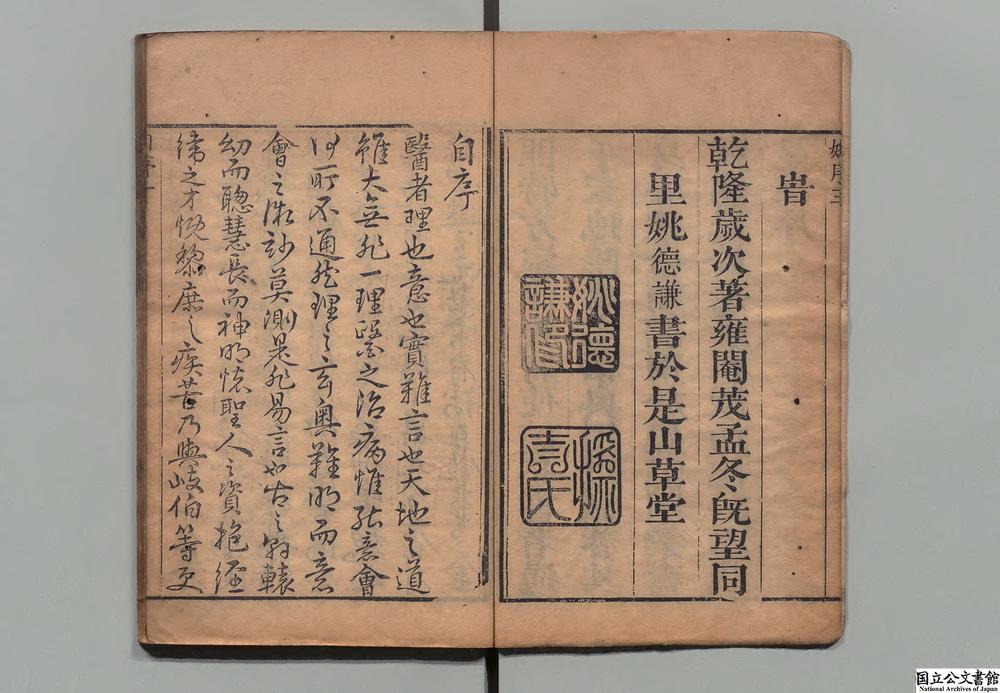 姚序 三
旹
乾隆歲次著雍閹茂孟冬既望同
里姚德謙書於是山草堂
姚德謙印
自序
醫者理也意也實難言也天地之道
雖大無非一理醫之治病惟能意會
何所不通然理之玄奧難明而意
會之微妙莫測是非易言也古之軒轅
幼而聰慧長而神明懷聖人之資抱經
緯之才慨黎庶之疾苦乃與岐伯等更
自序 一
国立公文書館
National Archives of Japan